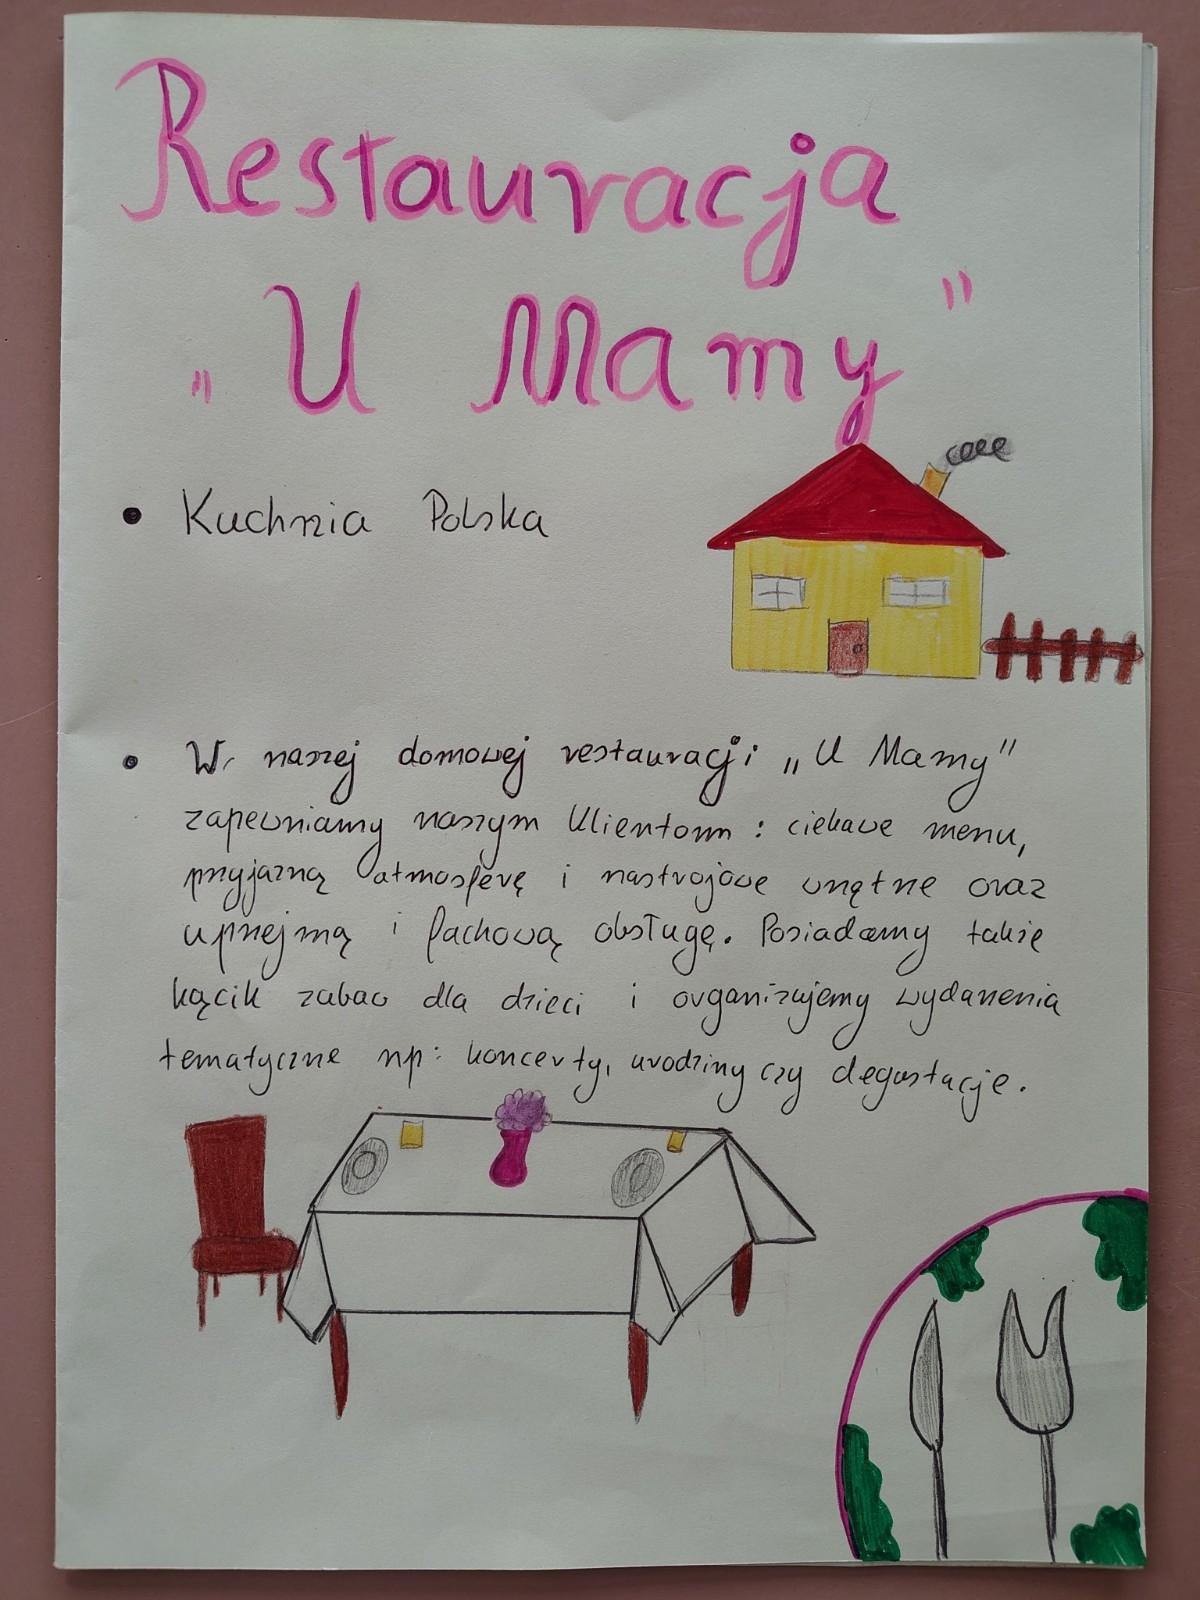 Restauracja
„U Mamy"
• Kuchnia Polska
• W naszej domowej restauracji „U Mamy"
zapewniamy naszym klientom: ciekawe menu,
przyjazną atmosferę i nastrojowe wnętrze oraz
uprzejmą i fachową obsługę. Posiadamy także
kącik zabaw dla dzieci i organizujemy wydarzenia
tematyczne np: koncerty, urodziny czy degustacje.